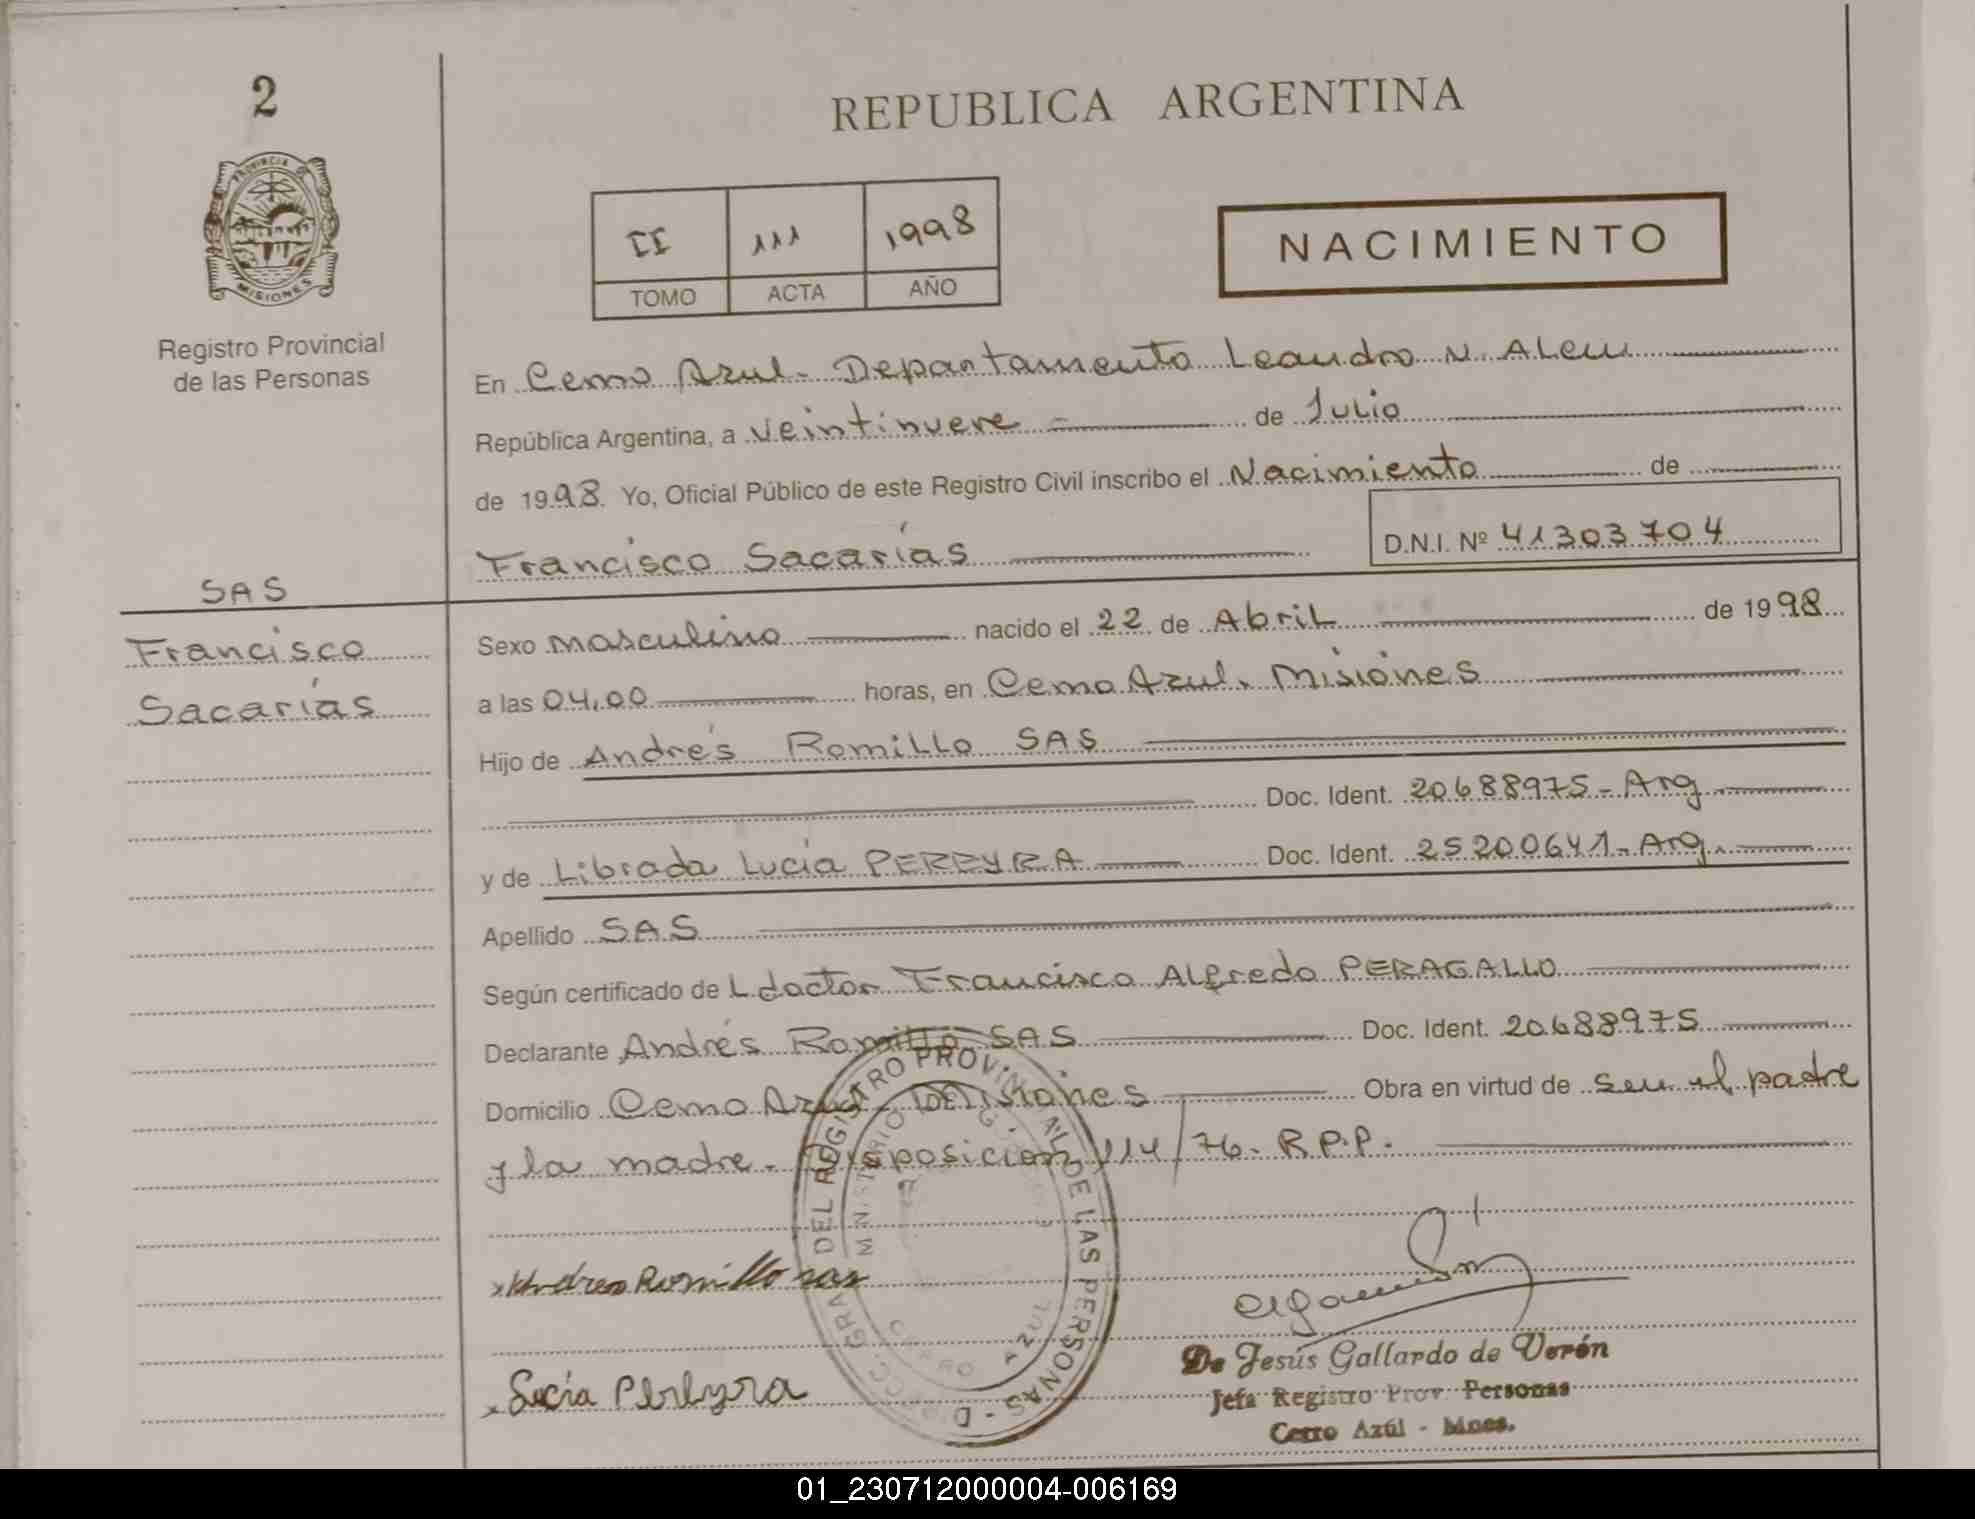 2
REPUBLICA ARGENTINA
PROVINCIA DE
MISIONES
Registro Provincial
de las Personas
II 111 1998
TOMO ACTA AÑO
NACIMIENTO
En Cerro Azul - Departamento Leandro N. Alem
República Argentina, a veintinueve de Julio
de 1998. Yo, Oficial Público de este Registro Civil inscribo el Nacimiento de
Francisco Sacarías
D.N.I. Nº 41303704
SAS
Francisco
Sacarías
Sexo masculino nacido el 22 de Abril de 1998
a las 04,00 horas, en Cerro Azul. Misiones
Hijo de Andrés Romillo SAS
Doc. Ident. 20688975 - Arg
y de Librada Lucía PEREYRA Doc. Ident. 25200641 - Arg.
Apellido SAS
Según certificado de L doctor Francisco Alfredo PERAGALLO
Declarante Andrés Romillo SAS Doc. Ident. 20688975
Domicilio Cerro Azul - Misiones Obra en virtud de ser el padre
y la madre. Disposicion 114/76. R.P.P.
DEL REGISTRO PROVINCIAL DE LAS PERSONAS
MINISTERIO DE
CERRO AZUL
Andres Romillo sas
Lucía Pereyra
De Jesús Gallardo de Verón
Jefa Registro Prov. Personas
Cerro Azúl - Mnes.
01_230712000004-006169